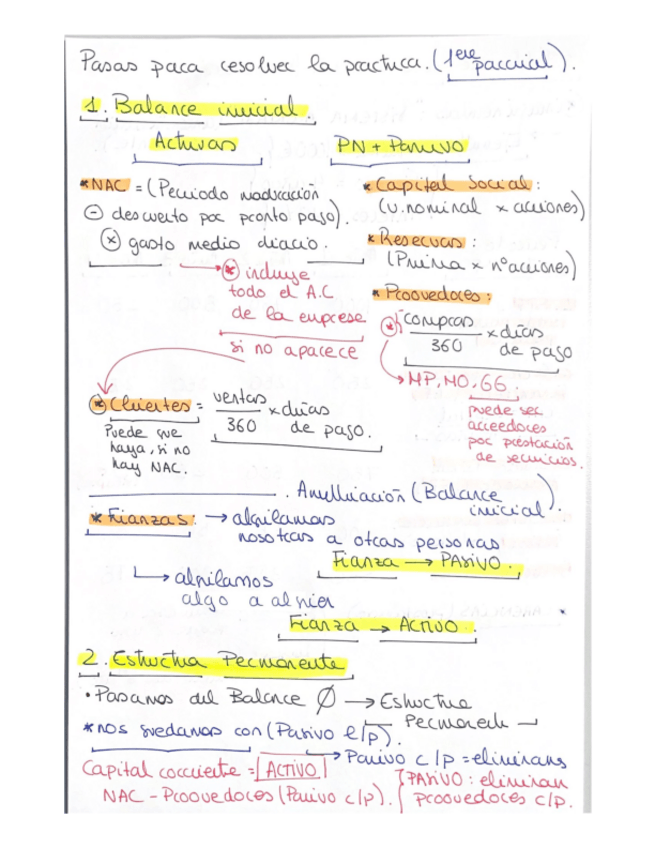 Pasos para resolver la practica. (1ere parcial).
1. Balance inicial.
Activos PN + Pasivo
*NAC = (Periodo maduración
⊖ descuento por pronto pago).
⊗ gasto medio diario.
* incluye
todo el A.C
de la empresa
si no aparece
* Capital Social:
(v.nominal × acciones)
* Reservas:
(Prima × nº acciones)
* Proovedores:
* compras/360 × días de pago
MP, MO, GG.
puede ser
acreedores
por prestación
de servicios.
* Clientes = ventas/360 × días de pago.
Puede que
haya, si no
hay NAC.
. Ampliación (Balance inicial).
* Fianzas → alquilamos
nosotros a otras personas
Fianza → PAsivo.
↳ alquilamos
algo a alguien
Fianza → Activo.
2. Estructura Permanente
• Pasamos del Balance Ø → Estructura
Permanente
* nos quedamos con (Pasivo l/p).
→ Pasivo c/p = eliminamos
Capital corriente = ACTIVO
NAC - Proovedores (Pasivo c/p).
PAsivo: eliminan
proovedores c/p.